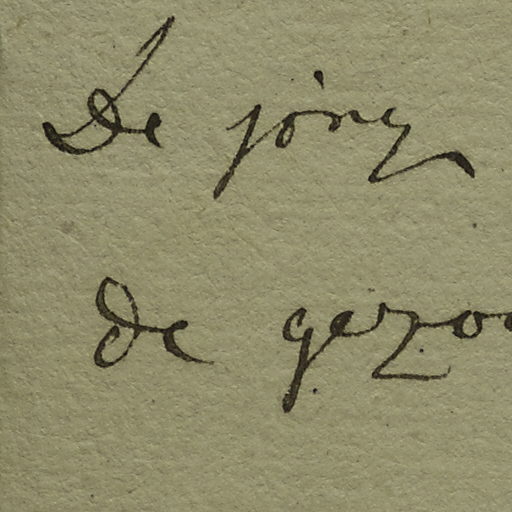 De jong
de gezo